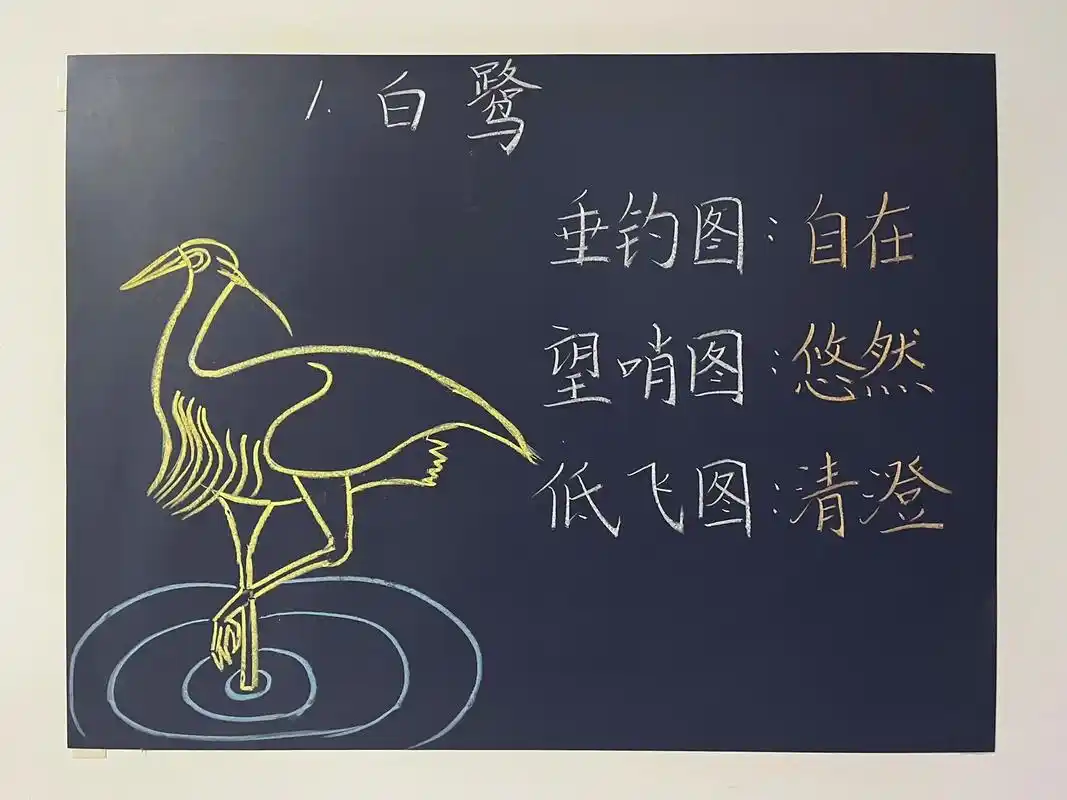 1. 白鹭
垂钓图：自在
望哨图：悠然
低飞图：清澄